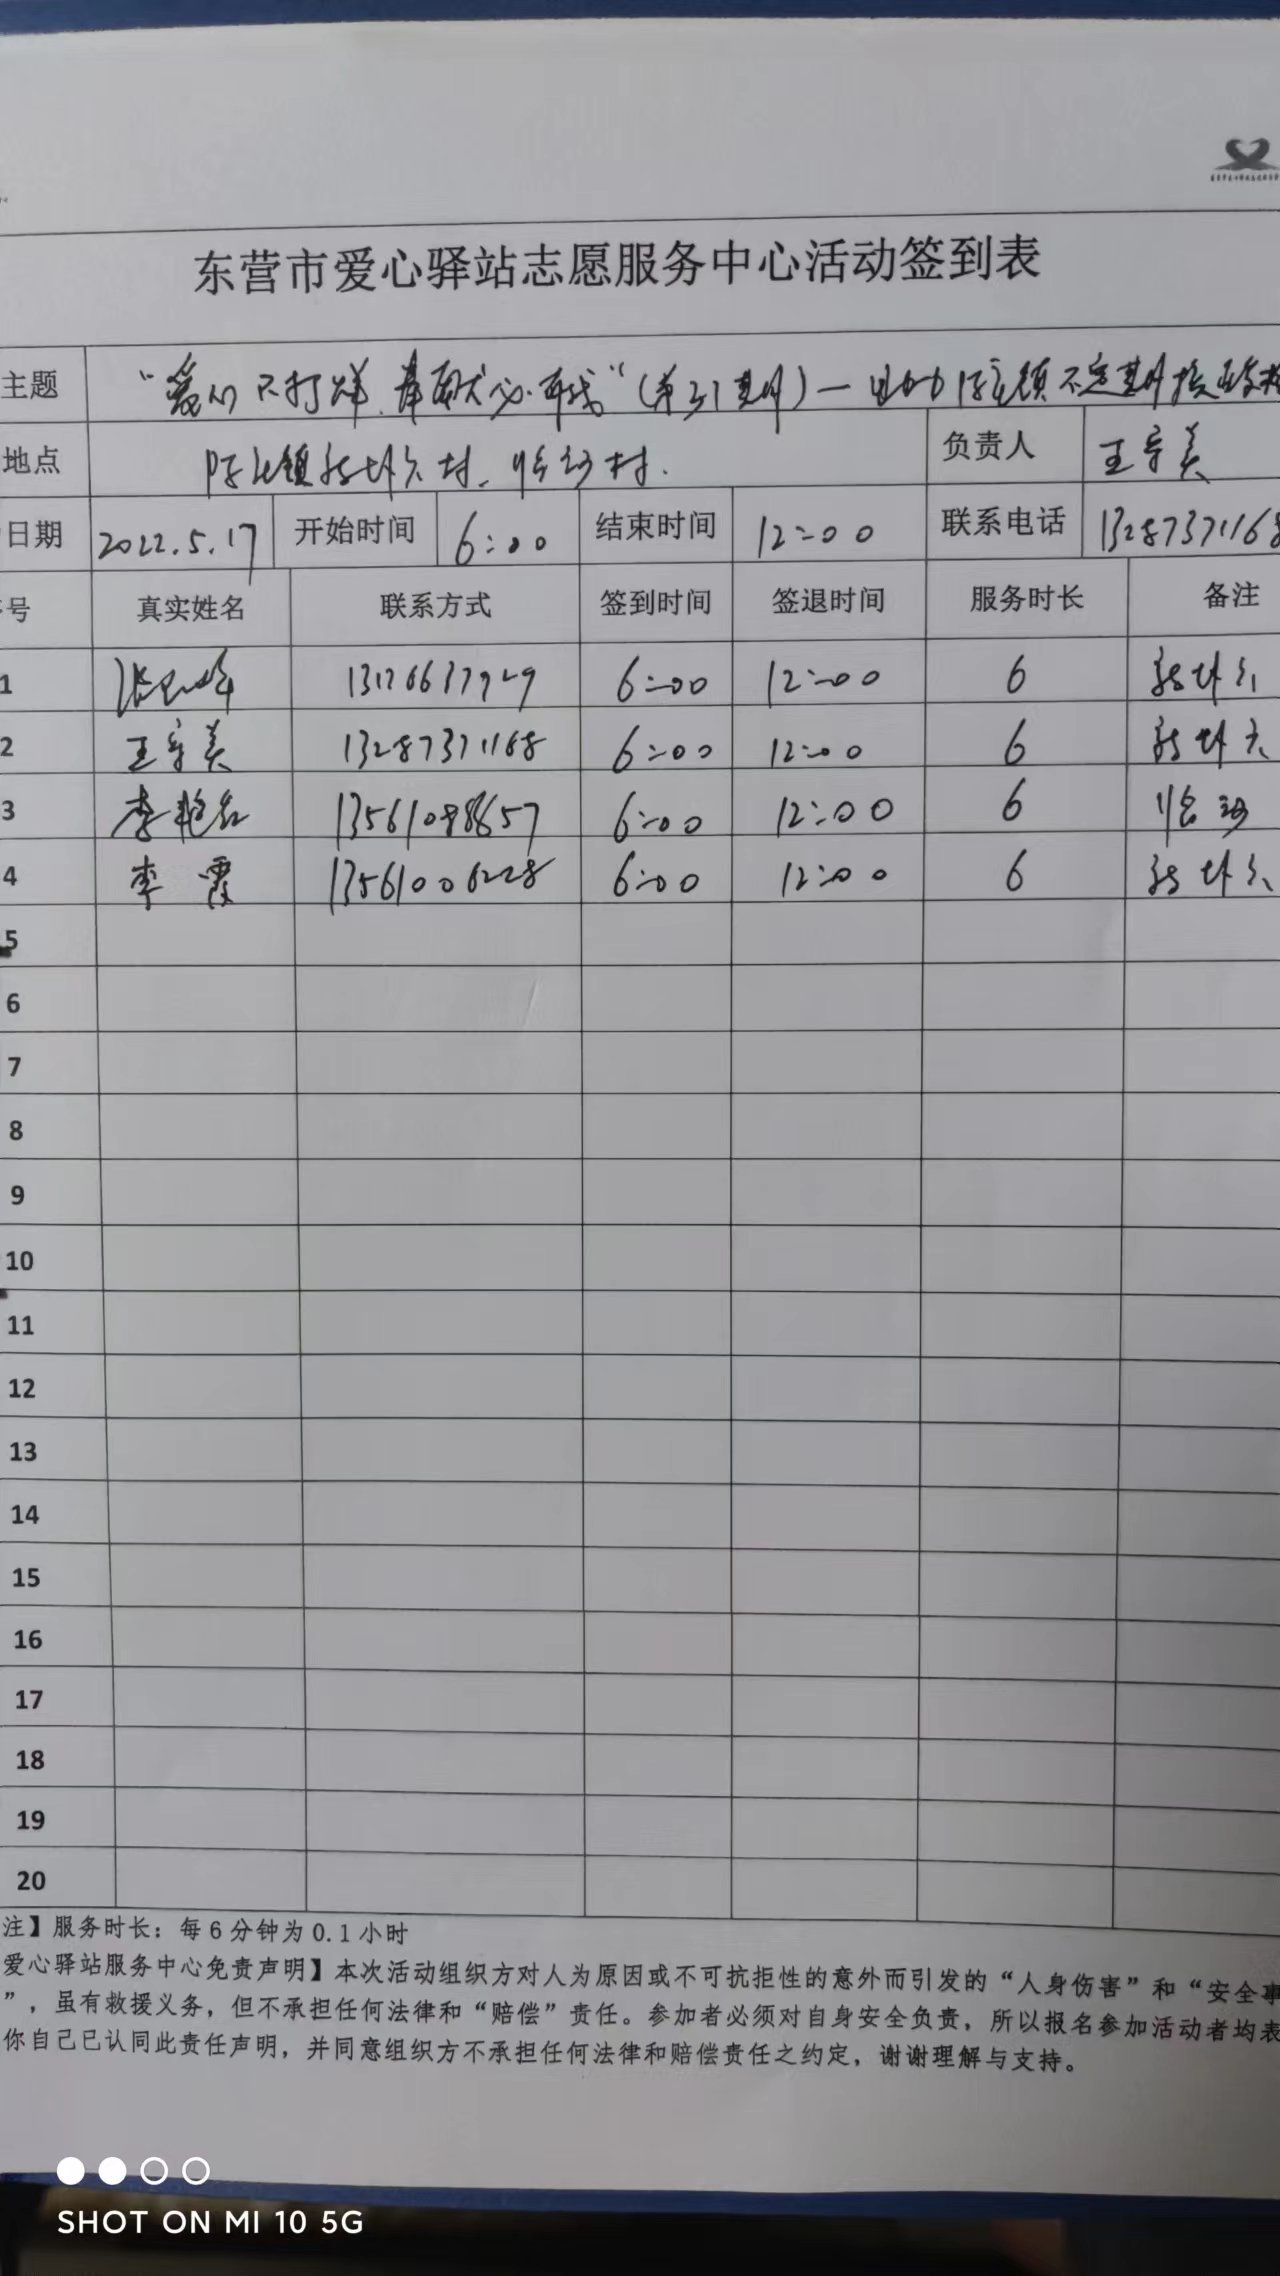 东营市爱心驿站志愿服务中心活动签到表
主题 不打烊 (第31期)一 镇不定期
地点 村、 村.
负责人 王守美
日期 2022.5.17 开始时间 6:00 结束时间 12:00 联系电话 1328737116
号 真实姓名 联系方式 签到时间 签退时间 服务时长 备注
1 6:00 12:00 6
2 王守美 13287371168 6:00 12:00 6
3 李艳红 6:00 12:00 6
4 李霞 13561006228 6:00 12:00 6
5
6
7
8
9
10
11
12
13
14
15
16
17
18
19
20
注】服务时长：每6分钟为0.1小时
爱心驿站服务中心免责声明】本次活动组织方对人为原因或不可抗拒性的意外而引发的“人身伤害”和“安全事
”，虽有救援义务，但不承担任何法律和“赔偿”责任。参加者必须对自身安全负责，所以报名参加活动者均表
你自己已认同此责任声明，并同意组织方不承担任何法律和赔偿责任之约定，谢谢理解与支持。
SHOT ON MI 10 5G